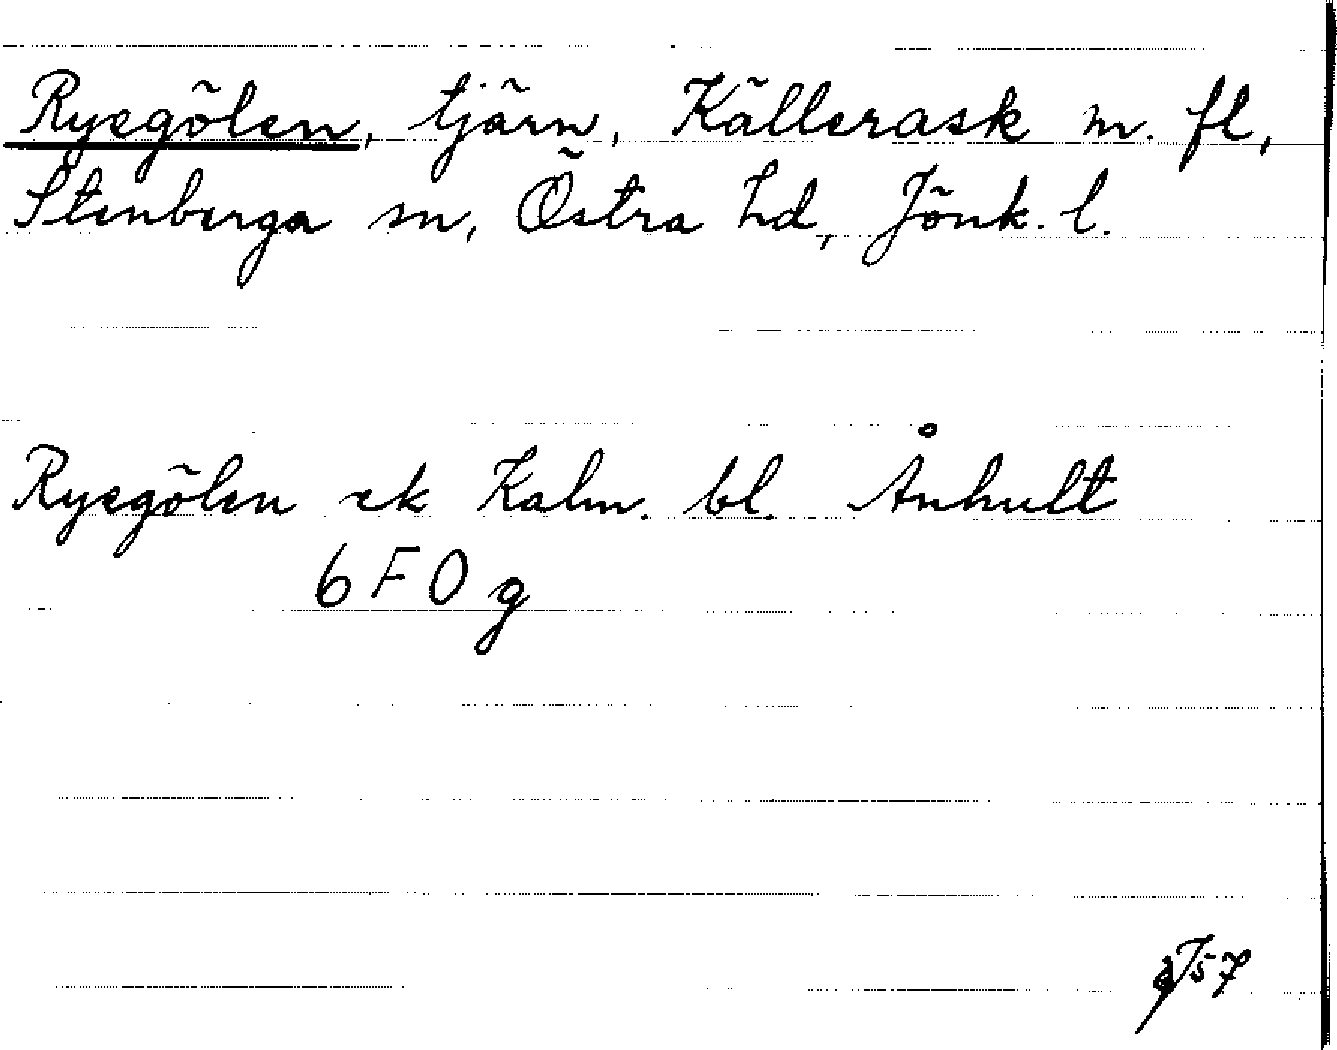 Ryegölen, tjärn, Källerask m. fl,
Stenberga sn, Östra hd, Jönk. l.
Ryegölen ek Kalm. bl. Ånhult
6 F 0 g
57